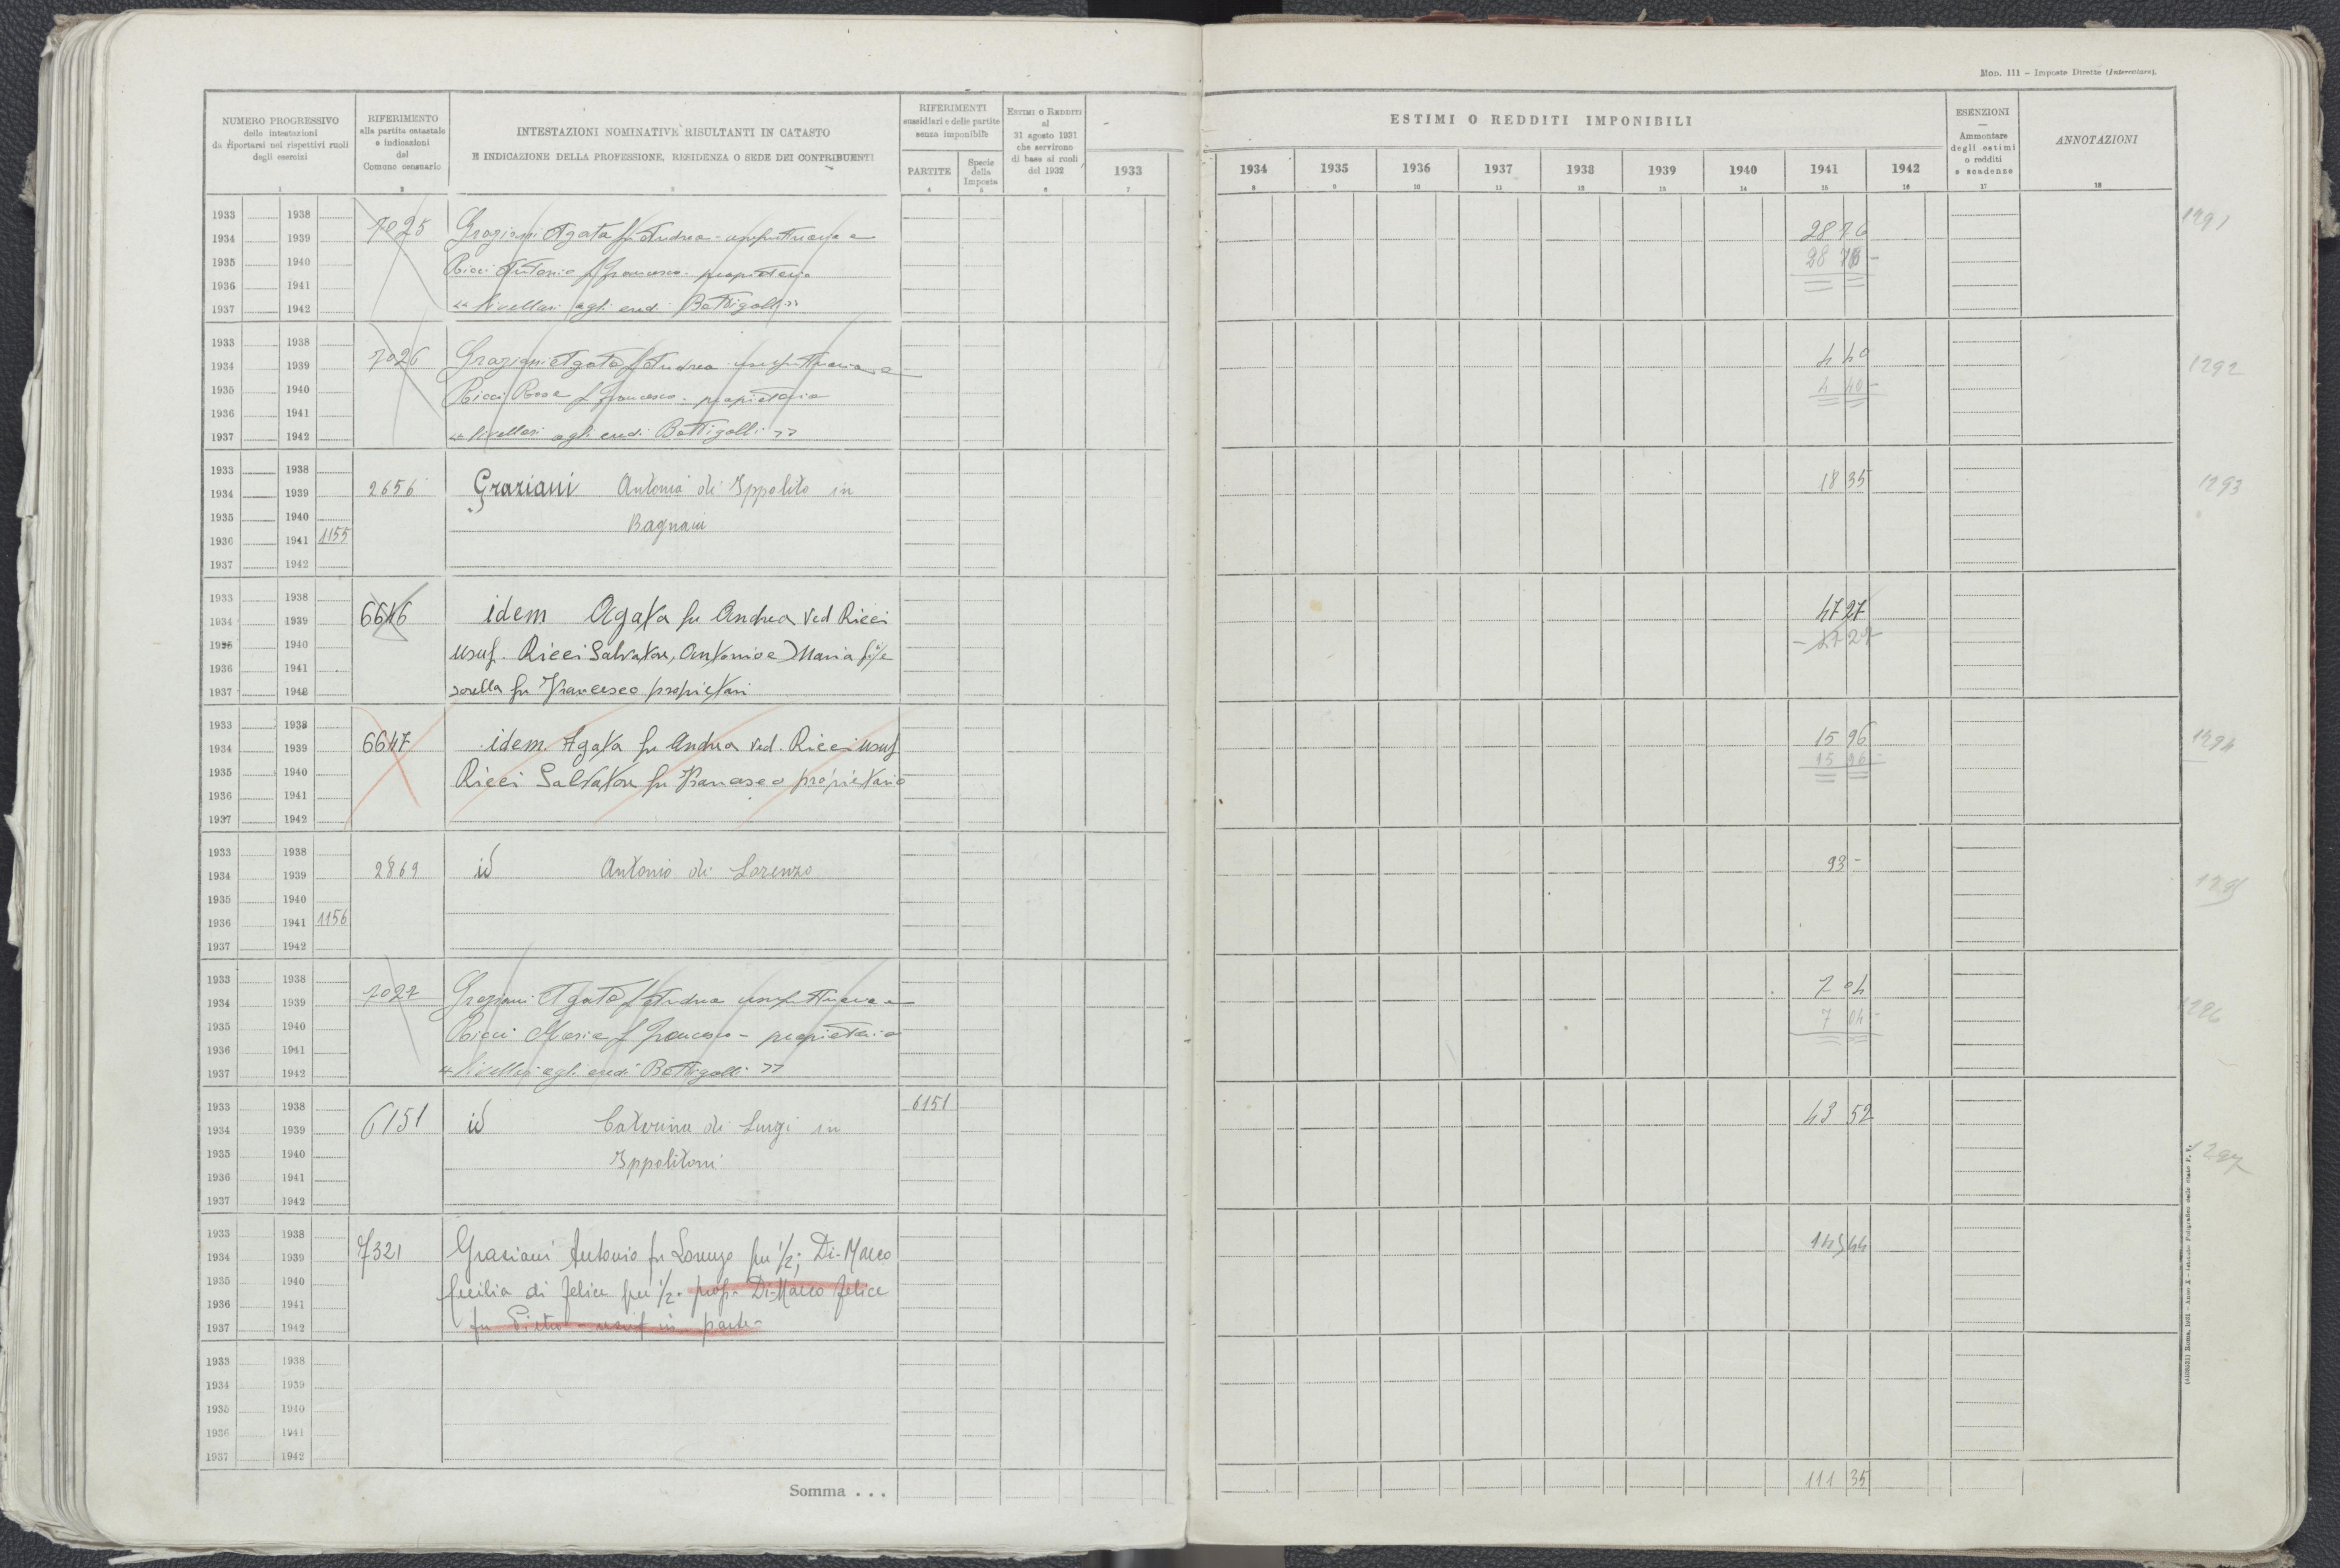 Mod. 111 - Imposte Dirette (Intercalare).
NUMERO PROGRESSIVO
delle intestazioni
da riportarsi nei rispettivi ruoli
degli esercizi
1
RIFERIMENTO
alla partita catastale
e indicazioni
del
Comune censuario
2
INTESTAZIONI NOMINATIVE RISULTANTI IN CATASTO
E INDICAZIONE DELLA PROFESSIONE, RESIDENZA O SEDE DEI CONTRIBUENTI
3
RIFERIMENTI
sussidiari e delle partite
senza imponibile
PARTITE
4
Specie
della
Imposta
5
ESTIMI O REDDITI
al
31 agosto 1931
che servirono
di base ai ruoli
del 1932
6
ESTIMI O REDDITI IMPONIBILI
1933 1934 1935 1936 1937 1938 1939 1940 1941 1942
7 8 9 10 11 12 13 14 15 16
ESENZIONI
Ammontare
degli estimi
o redditi
e scadenze
17
ANNOTAZIONI
18
1933 1938
1934 1939
1935 1940
1936 1941
1937 1942
7025 Graziani Agata fu Andrea - usufruttuaria e 28 76
Ricci Antonio fu Francesco - proprietario 28 76 -
"livellari agli eredi Bottigolli"
1291
1933 1938
1934 1939
1935 1940
1936 1941
1937 1942
7026 Graziani Agata fu Andrea usufruttuaria e 4 40
Ricci Rosa fu Francesco - proprietaria 4 40 -
"livellari agli eredi Bottigolli"
1292
1933 1938
1934 1939
1935 1940
1936 1941 1155
1937 1942
2656 Graziani Antonia di Ippolito in 18 35
Bagnani
1293
1933 1938
1934 1939
1935 1940
1936 1941
1937 1942
6646 idem Agata fu Andrea ved Ricci 47 27
usuf. Ricci Salvatore, Antonio e Maria f.lli e - 47 27
sorella fu Francesco proprietari
1933 1938
1934 1939
1935 1940
1936 1941
1937 1942
6647 idem. Agata fu Andrea ved. Ricci usuf 15 96
Ricci Salvatore fu Francesco proprietario 15 96 -
1294
1933 1938
1934 1939
1935 1940
1936 1941 1156
1937 1942
2869 id Antonio di Lorenzo 93 -
1295
1933 1938
1934 1939
1935 1940
1936 1941
1937 1942
7027 Graziani Agata fu Andrea usufruttuaria e 7 04
Ricci Maria fu Francesco - proprietaria 7 04 -
"livellari agli eredi Bottigolli"
1296
1933 1938
1934 1939
1935 1940
1936 1941
1937 1942
6151 id Caterina di Luigi in 6151 43 52
Ippolitoni
1297
1933 1938
1934 1939
1935 1940
1936 1941
1937 1942
7321 Graziani Antonio fu Lorenzo per 1/2; Di-Marco
Cecilia di Felice per 1/2 - prop. - Di-Marco Felice
fu Pietro - usuf in parte -
1933 1938
1934 1939
1935 1940
1936 1941
1937 1942
Somma . . . 111 35